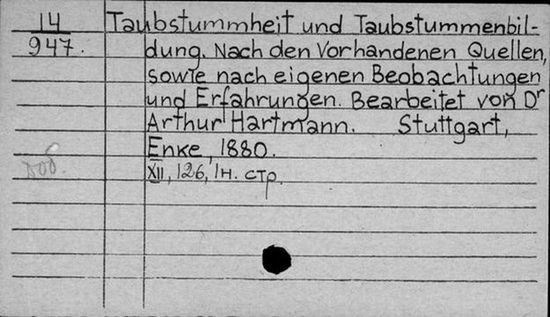 14
947.
Taubstummheit und Taubstummenbil-
dung. Nach den Vorhandenen Quellen,
sowie nach eigenen Beobachtungen
und Erfahrungen. Bearbeitet von Dr
Arthur Hartmann. Stuttgart,
Enke, 1880.
XII, 126, 1н. стр.